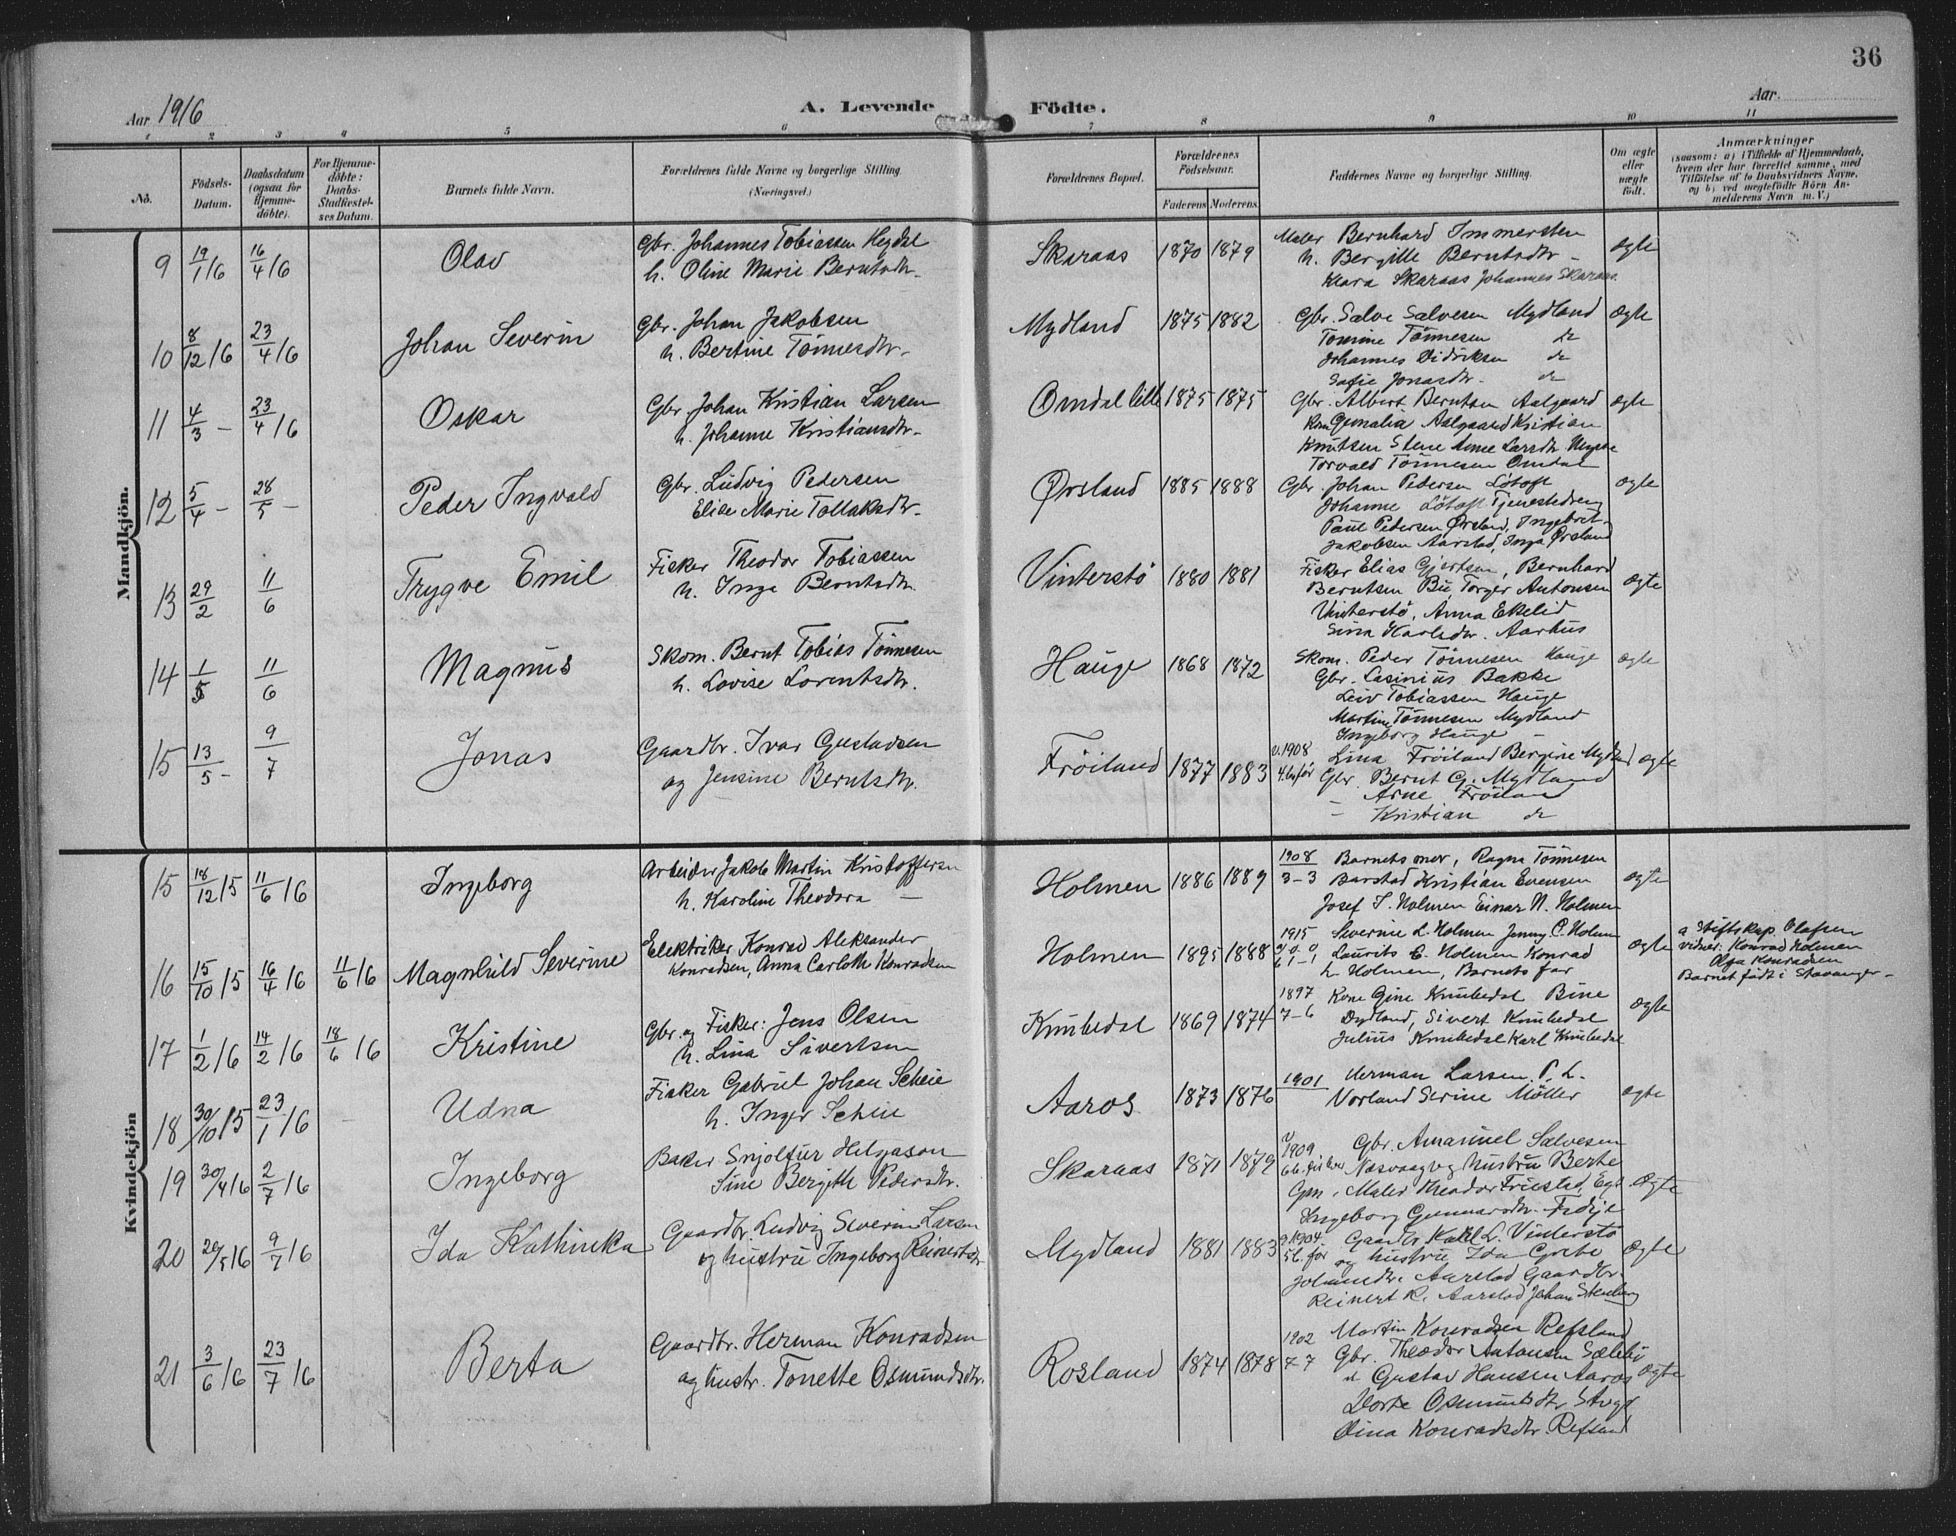 36
Aar 1916
A. Levende Födte.
Aar
1 2 3 4 5 6 7 8 9 10 11
No.
Födsels-Datum.
Daabsdatum (ogsaa for Hjemme-döbte).
For Hjemme-döbte: Daabs-Stadfæstel-ses Datum.
Barnets fulde Navn.
Forældrenes fulde Navne og borgerlige Stilling. (Næringsvei.)
Forældrenes Bopæl.
Forældrenes Födselsaar.
Faderens Moderens
Faddernes Navne og borgerlige Stilling.
Om ægte eller uægte födt.
Anmærkninger
(saasom: a) i Tilfælde af Hjemmedaab, hvem der har forrettet samme, med Tilföielse af to Daabsvidners Navne, og b) ved uægtefödte Börn An-melderens Navn m. V.)
Mandkjön.
9 19/1 16 16/4 16 Olav
Gbr. Johannes Tobiassen Heydal
h. Oline Marie Berntsdtr.
Skaraas 1870 1879
Maler Bernhard Immersten
h. Bergitte Berntsdtr
Klara Skaraas Johannes Skaraas
ægte
10 8/12 16 23/4 16 Johan Severin
Gbr. Johan Jakobsen
h. Bertine Tönnesdtr.
Mydland 1875 1882
Gbr. Salve Salvesen Mydland
Tomine Tönnesen do
Johannes Didriksen do
Sofie Jonasdtr. do
ægte
11 4/3 - 23/4 16 Oskar
Gbr. Johan Kristian Larsen
h. Johanne Kristiansdtr.
Omdal lille 1875 1875
Gbr. Albert Berntsen Aalgaard
Kone Gunalia Aalgaard Kristian
Knutsen Stene Anne Larsdtr.
Torvald Tönnesen Omdal
ægte
12 5/4 - 28/5 - Peder Ingvald
Gbr. Ludvig Pedersen
Elise Marie Tollaksdtr.
Ørsland 1885 1888
Gbr. Johan Pedersen Løtoft
Johanne Løtoft Tjenestedreng
Paul Pedersen Ørsland, Ingebret
Jakobsen Aarstad, Inga Ørsland
ægte
13 29/2 11/6 Trygve Emil
Fisker Theodor Tobiassen
h. Inga Berntsdtr.
Vinterstö 1880 1881
Fisker Elias Gjertsen, Bernhard
Berntsen Bu, Torger Antonsen
Vinterstö, Anna Ekelid
Sina Karlsdtr. Aarhus
ægte
14 1/5 11/6 Magnus
Skom. Bernt Tobias Tönnesen
h. Lovise Lorentsdtr.
Hauge 1868 1872
Skom. Peder Tönnesen Hauge
Gbr. Casinius Bakke
Leiv Tobiassen Hauge
Martine Tönnesen Mydland
Ingeborg Hauge
ægte
15 13/5 - 9/7 Jonas
Gaardbr. Ivar Gustadsen
og Jensine Berntsdtr.
Fröiland 1877 1883
v. 1908 Lina Fröiland Bergine Mydland
Gbr. Bernt G. Mydland
- Arne Fröiland
- Kristian do
ægte
Kvindekjön
15 18/12 15 11/6 16 Ingeborg
Arbeider Jakob Martin Kristoffersen
h. Karoline Theodora -
Holmen 1886 1889
1908 3-3
Barnets mor, Ragna Tönnesen
Barstad Kristian Evensen
Josef S. Holmen Einar N. Holmen
ægte
16 15/10 15 16/4 16 11/6 16 Magnhild Severine
Elektriker Konrad Aleksander
Konradsen, Anna Carloth Konradsen
Holmen 1895 1888
1915 Severine L. Holmen Jenny C. Holmen
Laurits E. Holmen Konrad
L. Holmen, Barnets far
ægte
a Stiftskap. Olafsen
vidner: Konrad Holmen
Olga Konradsen
Barnet födt i Stavanger -
17 1/2 16 14/2 16 18/6 16 Kristine
Gbr. og Fisker: Jens Olsen
h. Lina Sivertsen
Knubedal 1869 1874
1897 7-6
Kone Gine Knubedal Bine
Dydland, Sivert Knubedal
Julius Knubedal Karl Knubedal
ægte
18 30/10 15 23/1 16 Udna
Fisker Gabriel Johan Scheie
h. Inger Scheie
Aaros 1873 1876
1901 Herman Larsen P. L.
Norland Serine Möller
ægte
19 30/4 16 2/7 16 Ingeborg
Baker Snjolfur Helgason
Sine Bergith Pedersdtr.
Skaraas 1871 1879
v 1909 Gbr. Amanuel Salvesen
Aasvaag og hustru Berte
Gpn. Maler Theodor Friestad, Eg.
Ingeborg Gunnarsdtr. Fidje
ægte
20 20/5 16 9/7 16 Ida Kathinka
Gaardbr. Ludvig Severin Larsen
og hustru Ingeborg Reinertsdtr
Mydland 1881 1883
1904 Gaardbr. Karl L. Vinterstö
og hustru Ida Grebe
Aarstad Gaardbr.
Reinert R. Aarstad Johan Stenberg
ægte
21 3/6 16 23/7 16 Berta
Gaardbr. Herman Konradsen
og hustr. Tonette Osmundsdtr.
Rosland 1874 1878
1902 7-7
Martin Konradsen Refsland
Gbr. Theodor Antonsen Sælebö
d. Gustav Hansen Aaros
Dorte Osmundsdtr. Stegl
Dina Konradsdtr. Refsland
ægte